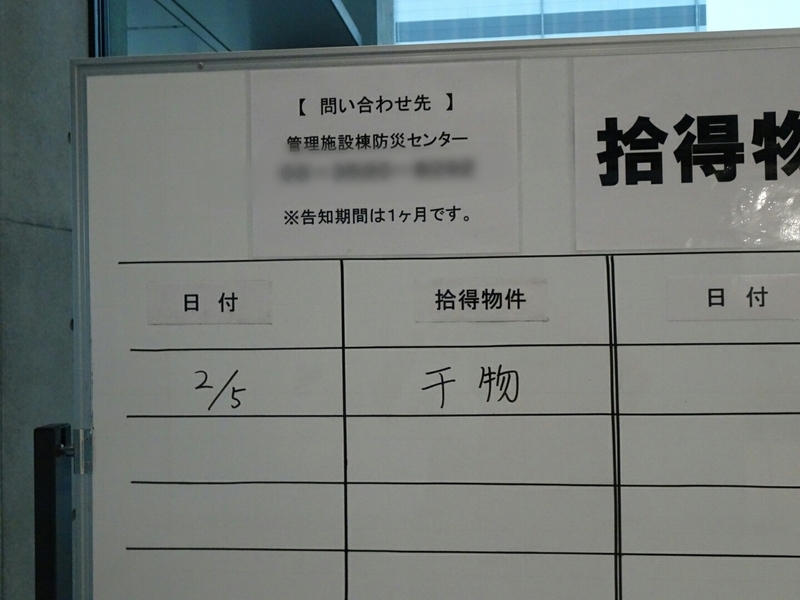 【 問い合わせ先 】
管理施設棟防災センター
※告知期間は1ヶ月です。
拾得物
日付
拾得物件
日付
2/5
干物